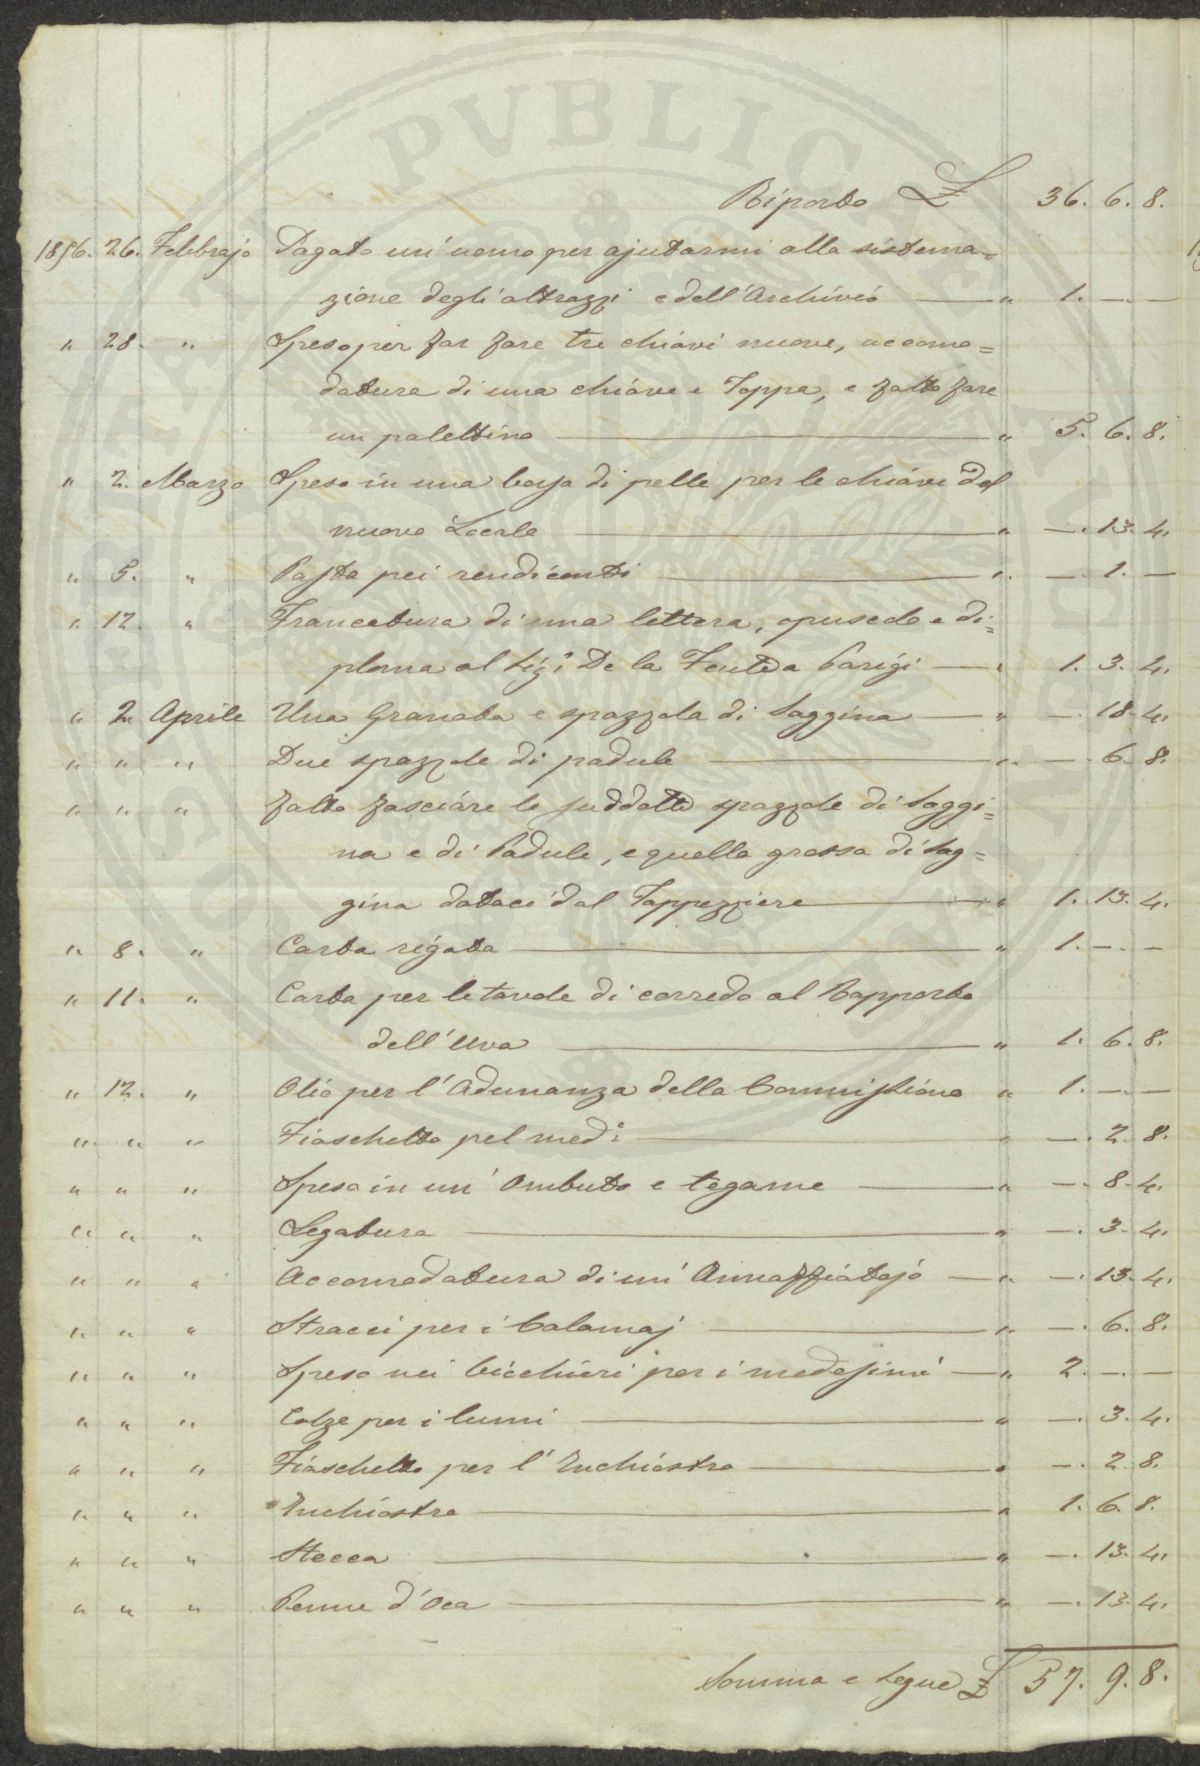 Riporto £ 36. 6. 8.
1856. 26. Febbrajo Pagato un'uomo per ajutarmi alla sistema=
zione degli attrazzi e dell'Archivio " 1. — —
" 28. " Speso per far fare tre chiavi nuove, accomo=
datura di una chiave e Toppa, e fatto fare
un palettino " 5. 6. 8.
" 2. Marzo Speso in una borsa di pelle per le chiavi del
nuovo Locale " —. 13. 4.
" 5. " Pasta pei rendiconti " —. 1. —
" 12. " Francatura di una lettera, opuscolo e di=
ploma al Sig.i De la Feutd a Parigi — " 1. 3. 4.
" 2. Aprile Una Granata e spazzola di Saggina — " —. 18. 4.
" " " Due spazzole di padule " —. 6. 8.
" " " Fatto fasciare le suddette spazzole di Saggi=
na e di Padule, e quella grossa di Sag=
gina dataci dal Tappezziere " 1. 13. 4.
" 8. " Carta rigata " 1. —. —
" 11. " Carta per le tavole di corredo al Rapporto
dell'Uva " 1. 6. 8.
" 12. " Olio per l'Adunanza della Commissione " 1. —. —
" " " Fiaschetto pel med.i " —. 2. 8.
" " " Speso in un' Ombuto e tegame " —. 8. 4.
" " " Legatura " —. 3. 4.
" " " Accomodatura di un' Annaffiatojo — " —. 13. 4.
" " " Stracci per i Calamaj " —. 6. 8.
" " " Speso nei bicchieri per i medesimi — " 2. —. —
" " " Calze per i lumi " —. 3. 4.
" " " Fiaschetto per l'Inchiostro " —. 2. 8.
" " " Inchiostro " 1. 6. 8.
" " " Stecca " —. 13. 4.
" " " Penne d'Oca " —. 13. 4.
Somma e segue £ 57. 9. 8.
PVBLIC